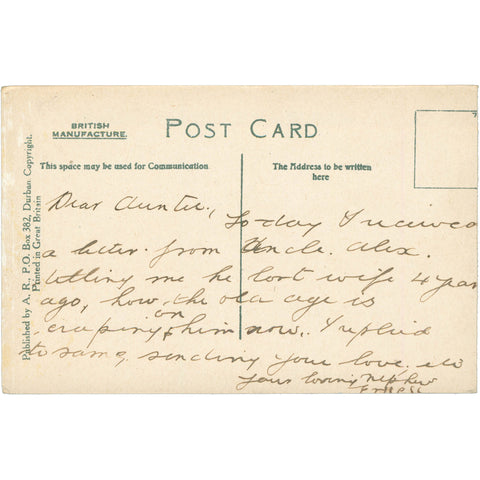 BRITISH
MANUFACTURE.
POST CARD
This space may be used for Communication
The Address to be written
here
Published by A. R., P.O. Box 382, Durban Copyright.
Printed in Great Britain
Dear Auntie, To-day I received
a letter from Uncle. Alex.
telling me he lost wife 4 years
ago, how the old age is
on
craping him now. I replied
to same, sending your love. etc
your loving nephew